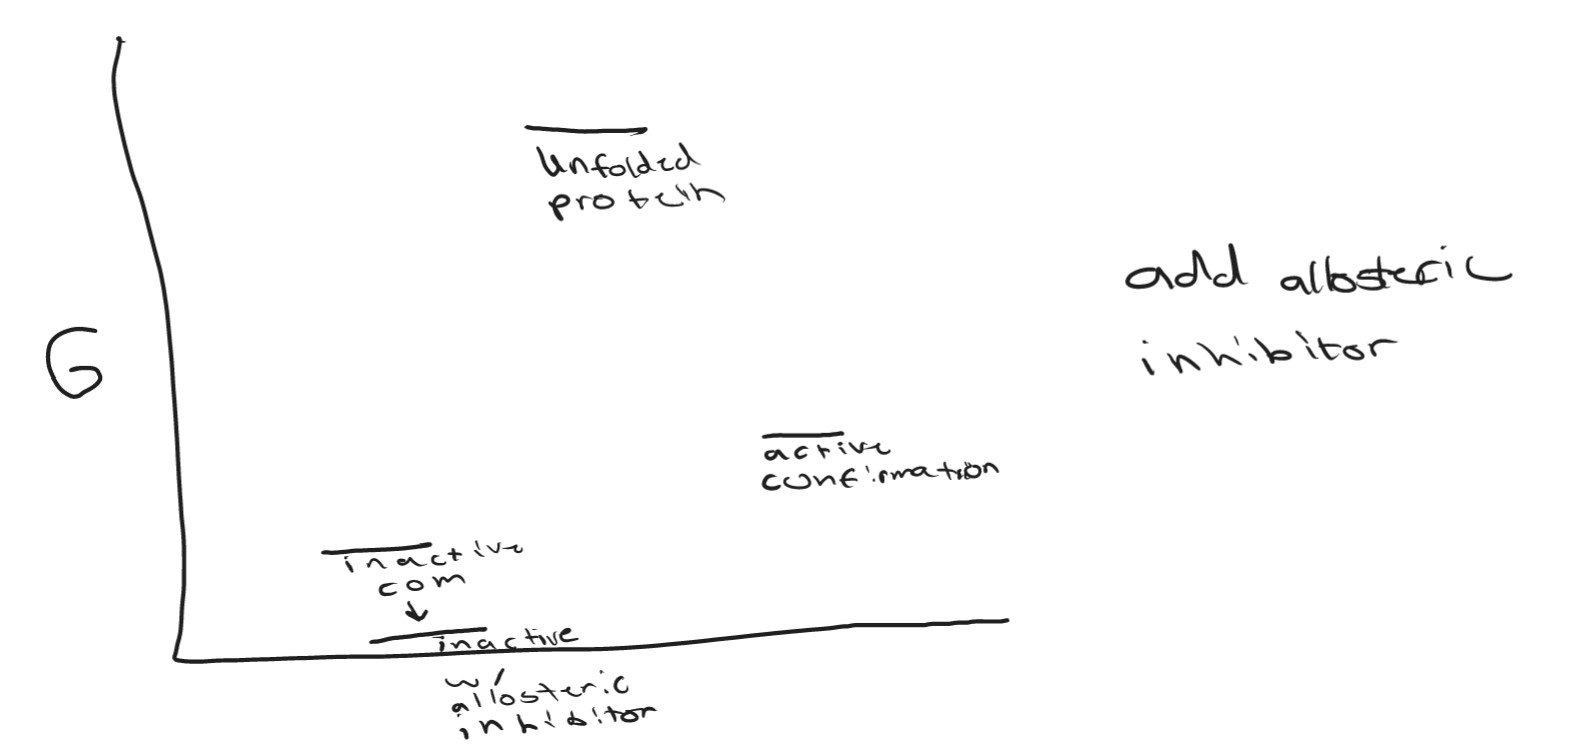 Unfolded
protein
add allosteric
inhibitor
G
active
confirmation
inactive
com
inactive
w/
allosteric
inhibitor